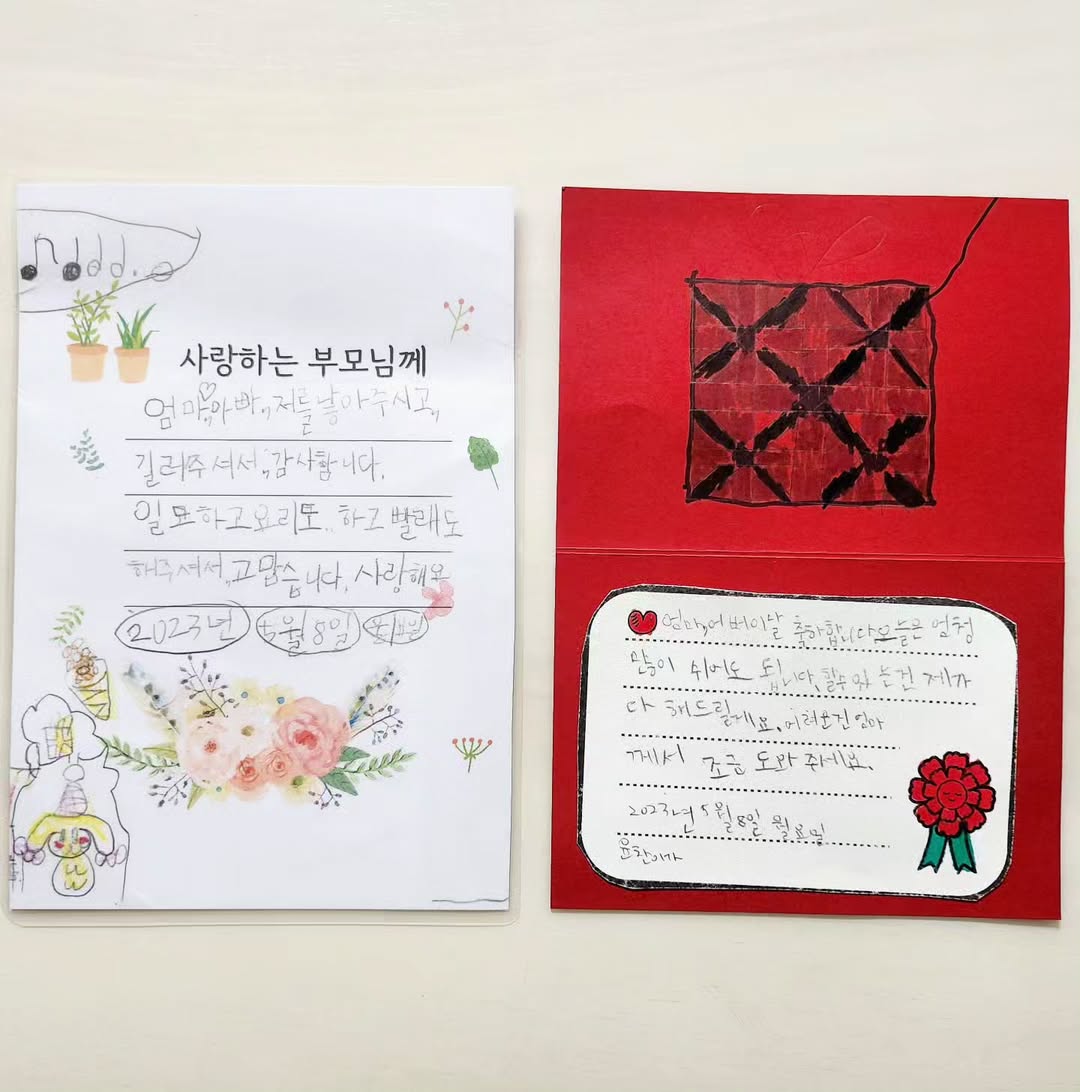 사랑하는 부모님께
엄마,아빠,,저를낳아주시고,,
길러주셔서,,감사합니다.
일도하고요리도..하고빨래도
해주셔서,,고맙습니다,사랑해요
2023년 5월8일
엄마,어버이날 축하합니다오늘은 엄청
많이 쉬어도 됩니다,할수있는건 제가
다 해드릴게요,어려운건엄마
께서 조금 도와주세요.
2023년5월8일 월요일
윤찬이가